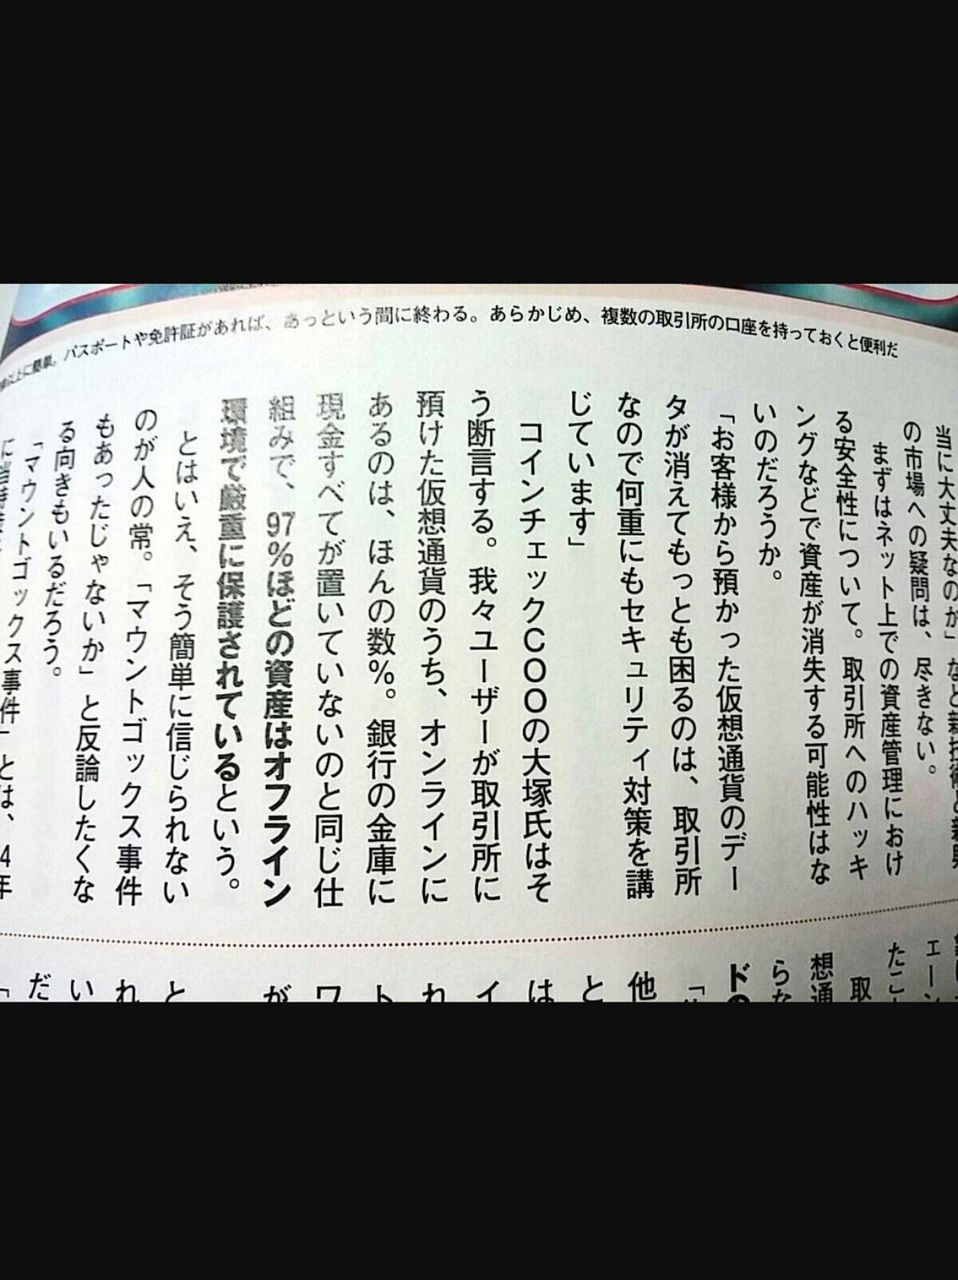 パスポートや免許証があれば、あっという間に終わる。あらかじめ、複数の取引所の口座を持っておくと便利だ
当に大丈夫なのか」など新技術と新興
の市場への疑問は、尽きない。
まずはネット上での資産管理におけ
る安全性について。取引所へのハッキ
ングなどで資産が消失する可能性はな
いのだろうか。
「お客様から預かった仮想通貨のデー
タが消えてもっとも困るのは、取引所
なので何重にもセキュリティ対策を講
じています」
コインチェックCOOの大塚氏はそ
う断言する。我々ユーザーが取引所に
預けた仮想通貨のうち、オンラインに
あるのは、ほんの数%。銀行の金庫に
現金すべてが置いていないのと同じ仕
組みで、97%ほどの資産はオフライン
環境で厳重に保護されているという。
とはいえ、そう簡単に信じられない
のが人の常。「マウントゴックス事件
もあったじゃないか」と反論したくな
る向きもいるだろう。
「マウントゴックス事件」とは、